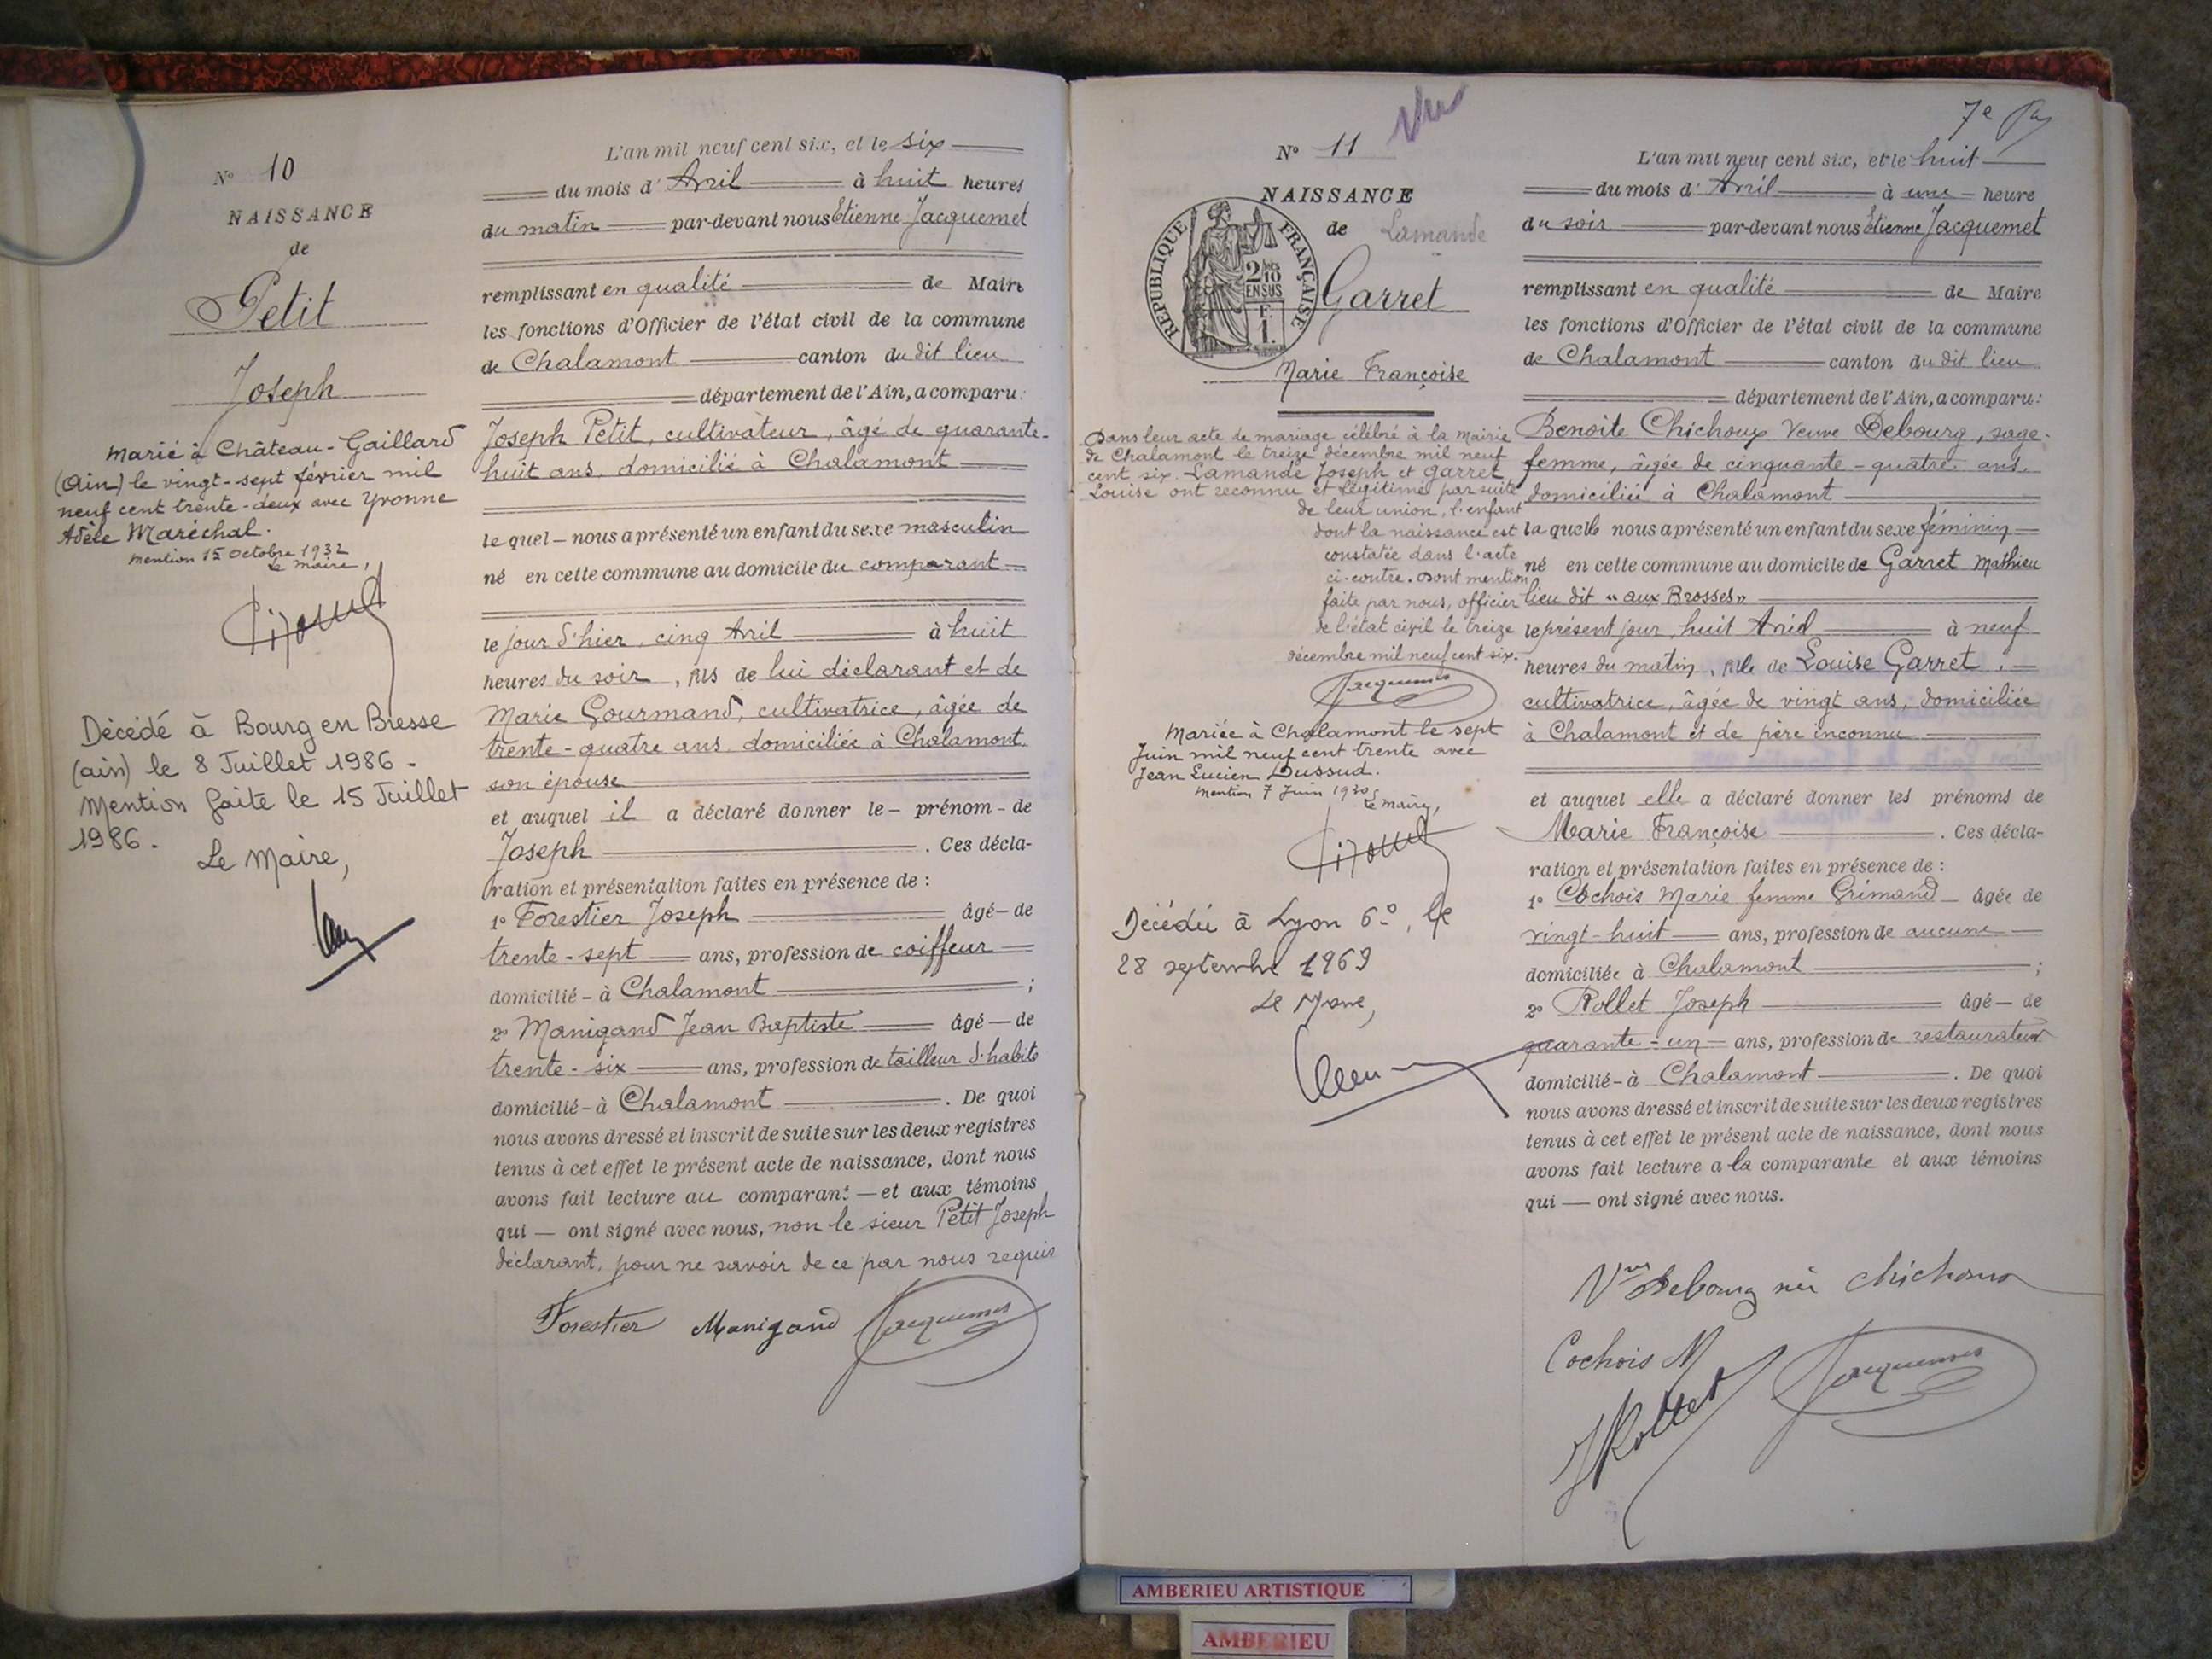 N° 10
NAISSANCE
de
Petit
Joseph
Marié à Château-Gaillard
(Ain) le vingt-sept février mil
neuf cent trente-deux avec Yvonne
Adèle Maréchal.
Mention 15 Octobre 1932
Le maire,
Décédé à Bourg en Bresse
(ain) le 8 Juillet 1986 -
Mention faite le 15 Juillet
1986.
Le Maire,
L'an mil neuf cent six, et le six
du mois d'Avril à huit heures
du matin par-devant nous Etienne Jacquemet
remplissant en qualité de Maire
les fonctions d'Officier de l'état civil de la commune
de Chalamont canton du dit lieu
département de l'Ain, a comparu:
Joseph Petit, cultivateur, âgé de quarante-
huit ans, domicilié à Chalamont
le quel - nous a présenté un enfant du sexe masculin
né en cette commune au domicile du comparant
le jour d'hier, cinq Avril à huit
heures du soir, fils de lui déclarant et de
Marie Gourmand, cultivatrice, âgée de
trente-quatre ans, domiciliée à Chalamont,
son épouse
et auquel il a déclaré donner le - prénom - de
Joseph . Ces décla-
ration et présentation faites en présence de :
1° Forestier Joseph âgé - de
trente-sept ans, profession de coiffeur
domicilié - à Chalamont ;
2° Manigand Jean Baptiste âgé - de
trente-six ans, profession de tailleur d'habits
domicilié - à Chalamont . De quoi
nous avons dressé et inscrit de suite sur les deux registres
tenus à cet effet le présent acte de naissance, dont nous
avons fait lecture au comparant - et aux témoins
qui - ont signé avec nous, non le sieur Petit Joseph
déclarant, pour ne savoir de ce par nous requis
Forestier Manigand Jacquemet
7e
N° 11
NAISSANCE
de Lamande
Garret
Marie Françoise
RÉPUBLIQUE FRANÇAISE
2/10
EN SUS
F.
1.
Dans leur acte de mariage célébré à la mairie
de Chalamont le treize décembre mil neuf
cent six. Lamande Joseph et Garret
Louise ont reconnu et légitimé par suite
de leur union, l'enfant
dont la naissance est
constatée dans l'acte
ci-contre. Dont mention
faite par nous, officier
de l'état civil le treize
décembre mil neuf cent six.
Jacquemet
Mariée à Chalamont le sept
Juin mil neuf cent trente avec
Jean Lucien Dussud.
Mention 7 Juin 1930
Le maire,
Décédée à Lyon 6°, le
28 septembre 1969
Le Maire,
L'an mil neuf cent six, et le huit
du mois d'Avril à une - heure
du soir par-devant nous Etienne Jacquemet
remplissant en qualité de Maire
les fonctions d'Officier de l'état civil de la commune
de Chalamont canton du dit lieu
département de l'Ain, a comparu:
Benoite Chichoux Veuve Debourg, sage-
femme, âgée de cinquante-quatre ans,
domiciliée à Chalamont
la quelle nous a présenté un enfant du sexe féminin
né en cette commune au domicile de Garret Mathieu
lieu dit « aux Brosses »
le présent jour, huit Avril à neuf
heures du matin, fille de Louise Garret,
cultivatrice, âgée de vingt ans, domiciliée
à Chalamont et de père inconnu
et auquel elle a déclaré donner les prénoms de
Marie Françoise . Ces décla-
ration et présentation faites en présence de :
1° Cochois Marie femme Grimand âgée de
vingt-huit ans, profession de aucune
domiciliée à Chalamont ;
2° Rollet Joseph âgé - de
quarante-un ans, profession de restaurateur
domicilié - à Chalamont . De quoi
nous avons dressé et inscrit de suite sur les deux registres
tenus à cet effet le présent acte de naissance, dont nous
avons fait lecture a la comparante et aux témoins
qui - ont signé avec nous.
Vve Debourg née chichoux
Cochois M
J Rollet Jacquemet
AMBERIEU ARTISTIQUE
AMBERIEU